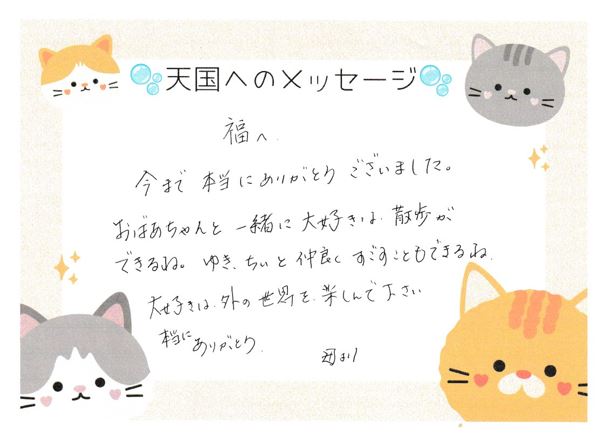 天国へのメッセージ
福へ
今まで本当にありがとうございました。
おばあちゃんと一緒に大好きな散歩が
できるね。ゆき、ちぃと仲良くすごすこともできるね。
大好きな外の世界を楽しんで下さい
本当にありがとう。
母より